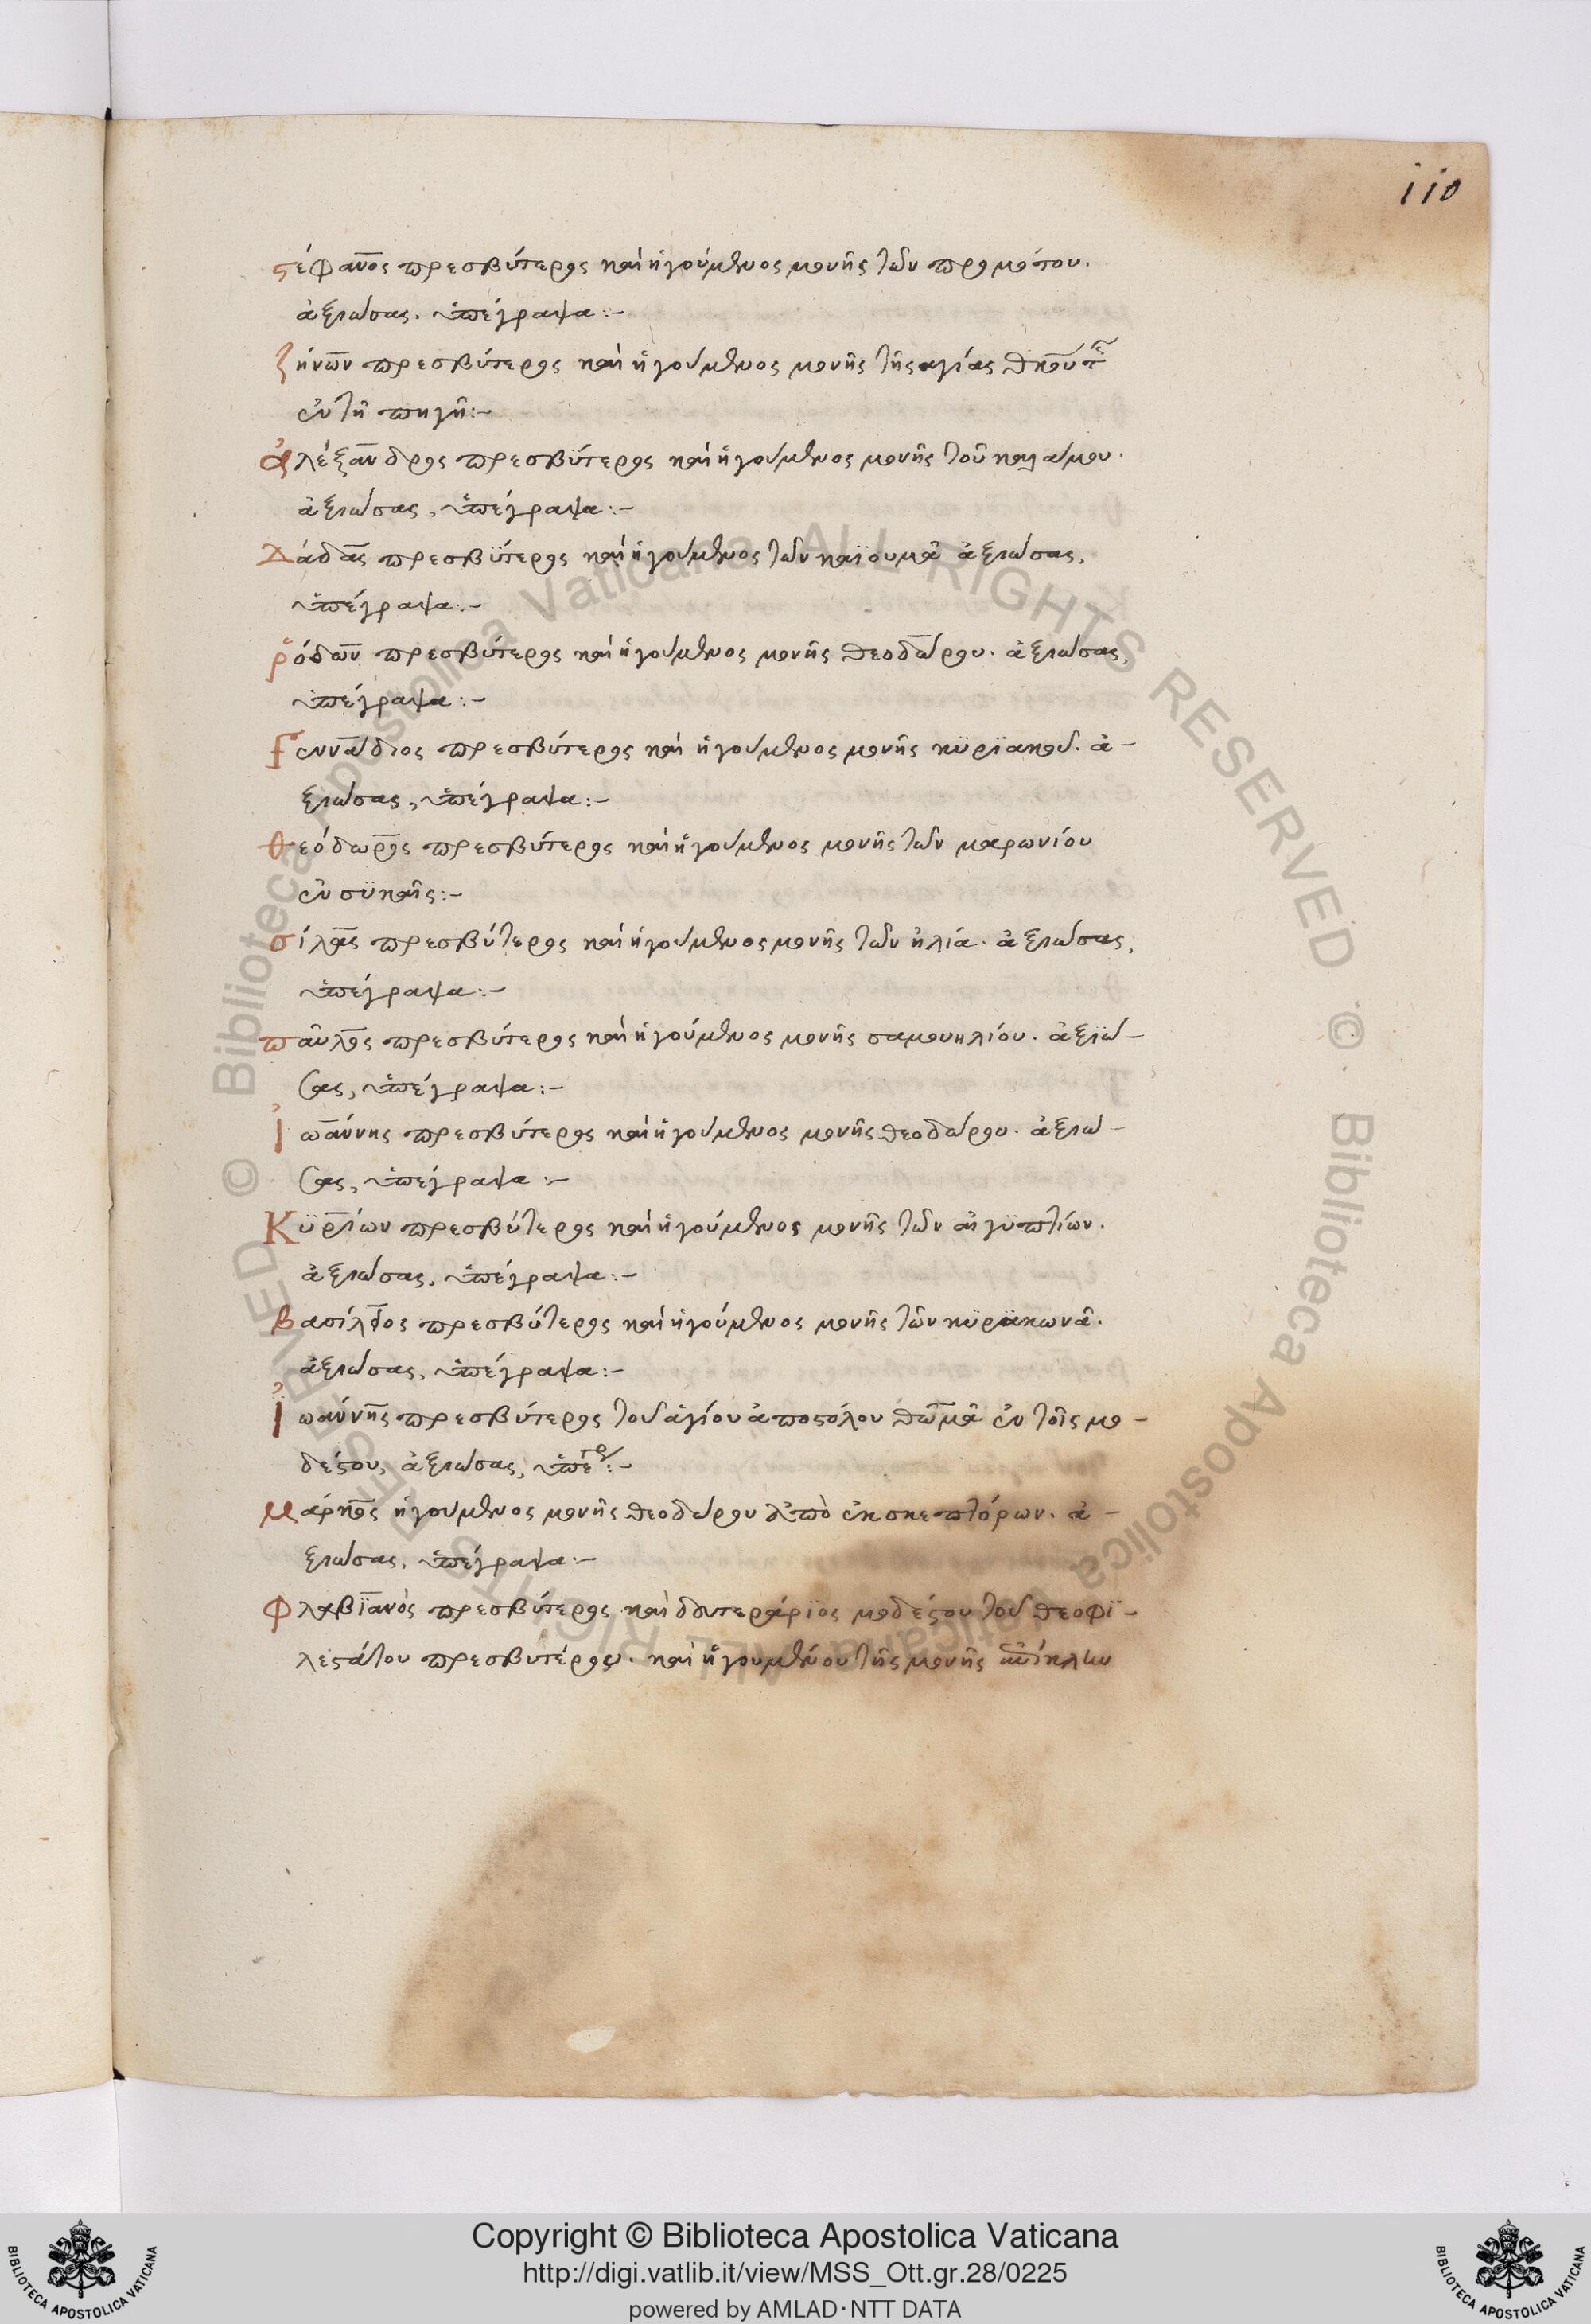 110
στέφανος πρεσβύτερος καὶ ἡγούμενος μονῆς τῶν προμότου.
ἀξιώσας. ὑπέγραψα:-
ζήνων πρεσβύτερος καὶ ἡγούμενος μονῆς τῆς ἁγίας θκου τῆς
ἐν τῆ πηγῆ:-
ἀλέξανδρος πρεσβύτερος καὶ ἡγούμενος μονῆς τοῦ καλάμου.
ἀξιώσας, ὑπέγραψα:-
Δάδας πρεσβύτερος καὶ ἡγούμενος τῶν καϊουμᾶ ἀξιώσας,
ὑπέγραψα:-
ῥόδων πρεσβύτερος καὶ ἡγούμενος μονῆς θεοδώρου. ἀξιώσας,
ὑπέγραψα:-
Γεννάδιος πρεσβύτερος καὶ ἡγούμενος μονῆς κϋρϊακοῦ. ἀ-
ξιώσας, ὑπέγραψα:-
θεόδωρος πρεσβύτερος καὶ ἡγούμενος μονῆς τῶν μαρωνίου
ἐν σϋκαῖς:-
σίλας πρεσβύτερος καὶ ἡγούμενος μονῆς τῶν ἠλία. ἀξιώσας,
ὑπέγραψα:-
παῦλος πρεσβύτερος καὶ ἡγούμενος μονῆς σαμουηλίου. ἀξιώ-
σας, ὑπέγραψα:-
Ἰωάννης πρεσβύτερος καὶ ἡγούμενος μονῆς θεοδώρου. ἀξιώ-
σας, ὑπέγραψα:-
Κϋρίων πρεσβύτερος καὶ ἡγούμενος μονῆς τῶν αἰγϋπτίων.
ἀξιώσας, ὑπέγραψα:-
βασίλειος πρεσβύτερος καὶ ἡγούμενος μονῆς τῶν κϋρϊακωνᾶ.
ἀξιώσας, ὑπέγραψα:-
Ἰωάννης πρεσβύτερος τοῦ ἁγίου ἀποστόλου θωμᾶ ἐν τοῖς μο-
δέστου, ἀξιώσας, ὑπέγρ:-
μάρκος ἡγούμενος μονῆς θεοδώρου ἀπὸ ἐκσκεπτόρων. ἀ-
ξιώσας, ὑπέγραψα:-
Φλαβϊανὸς πρεσβύτερος καὶ δευτεράρϊος μοδέστου τοῦ θεοφϊ-
λεστάτου πρεσβυτέρου. καὶ ἡγουμένου τῆς μονῆς
Copyright © Biblioteca Apostolica Vaticana
http://digi.vatlib.it/view/MSS_Ott.gr.28/0225
powered by AMLAD·NTT DATA